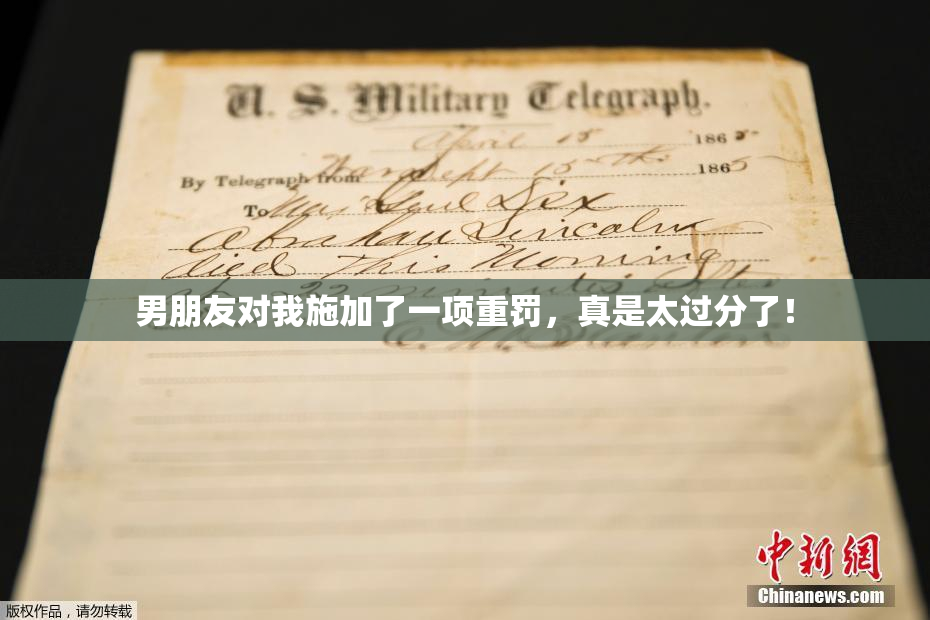 U. S. Military Telegraph.
April 15 1865
By Telegraph from War Dept 15th 1865
To Maj Genl Dix
Abraham Lincoln
died This Morning
22 minutes after
男朋友对我施加了一项重罚，真是太过分了！
中新網
Chinanews.com
版权作品，请勿转载